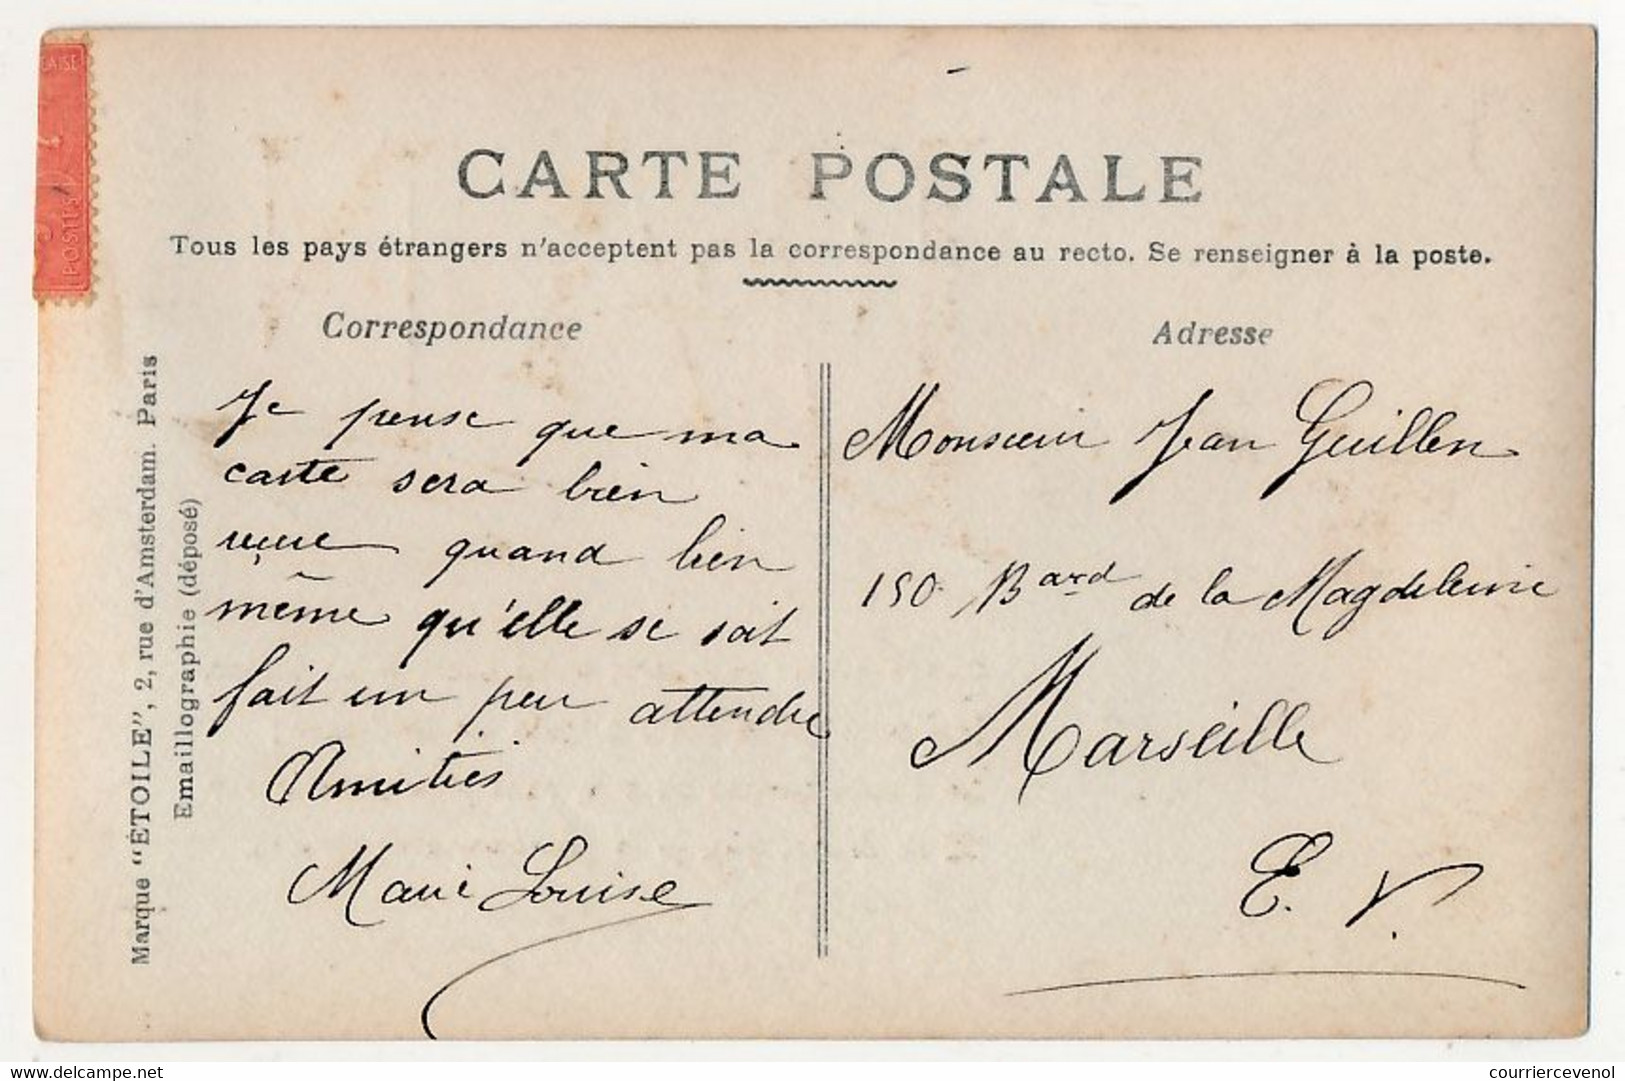 CARTE POSTALE
Tous les pays étrangers n'acceptent pas la correspondance au recto. Se renseigner à la poste.
Correspondance
Je pense que ma
carte sera bien
reçue quand bien
même qu'elle se soit
fait un peu attendre
Amitiés
Marie Louise
Adresse
Monsieur Jean Guillen
150 Bard de la Magdeleine
Marseille
E. V.
Marque "ÉTOILE", 2, rue d'Amsterdam. Paris
Emaillographie (déposé)
AISE
POSTES
www.delcampe.net
courriercevenol